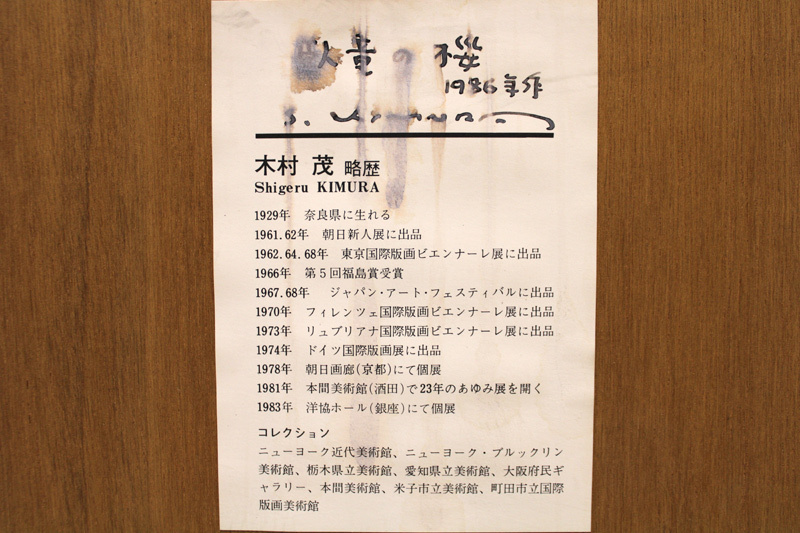 の桜
1986年作
S. KIMURA
木村 茂 略歴
Shigeru KIMURA
1929年 奈良県に生れる
1961.62年 朝日新人展に出品
1962.64.68年 東京国際版画ビエンナーレ展に出品
1966年 第5回福島賞受賞
1967.68年 ジャパン・アート・フェスティバルに出品
1970年 フィレンツェ国際版画ビエンナーレ展に出品
1973年 リュブリアナ国際版画ビエンナーレ展に出品
1974年 ドイツ国際版画展に出品
1978年 朝日画廊(京都)にて個展
1981年 本間美術館(酒田)で23年のあゆみ展を開く
1983年 洋協ホール(銀座)にて個展
コレクション
ニューヨーク近代美術館、ニューヨーク・ブルックリン
美術館、栃木県立美術館、愛知県立美術館、大阪府民ギ
ャラリー、本間美術館、米子市立美術館、町田市立国際
版画美術館